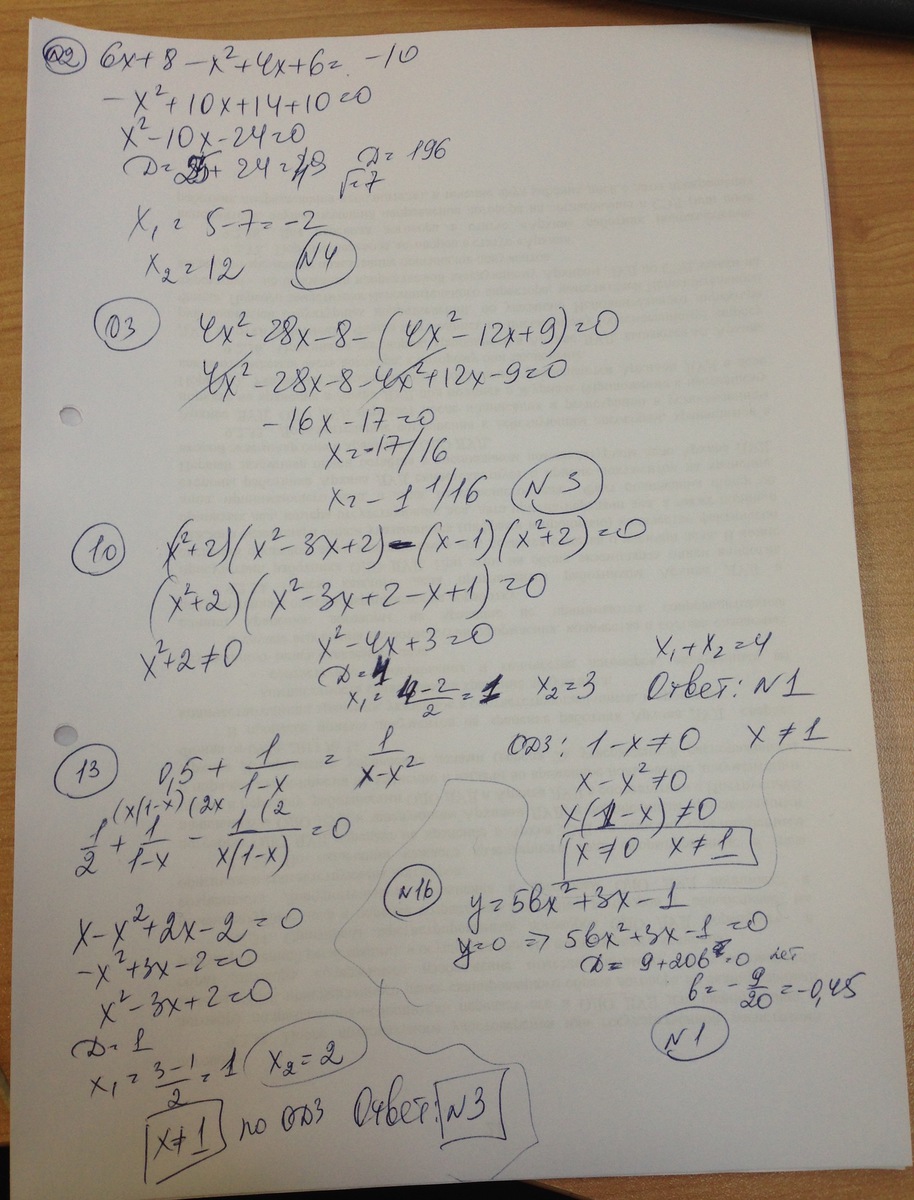 №2 6x+8-x²+4x+6= -10
-x²+10x+14+10=0
x²-10x-24=0
D=25+24=49 D=196
√=7
x₁=5-7=-2
x₂=12 N4
03 4x²-28x-8-(4x²-12x+9)=0
4x²-28x-8-4x²+12x-9=0
-16x-17=0
x=-17/16
x=-1 1/16 N3
10 (x²+2)(x²-3x+2)-(x-1)(x²+2)=0
(x²+2)(x²-3x+2-x+1)=0
x²+2≠0 x²-4x+3=0 x₁+x₂=4
D=4
x₁=(4-2)/2=1 x₂=3 Ответ: N1
13 0,5+1/(1-x)=1/(x-x²) ОДЗ: 1-x≠0 x≠1
x-x²≠0
x(1-x)≠0
x≠0 x≠1
(x(1-x) (2x (2
1/2+1/(1-x)-1/(x(1-x))=0
x-x²+2x-2=0
-x²+3x-2=0
x²-3x+2=0
D=1
x₁=(3-1)/2=1 x₂=2
x≠1 по ОДЗ Ответ: N3
N16 y=5bx²+3x-1
y=0 ⇒ 5bx²+3x-1=0
D=9+20b=0 нет
b=-9/20=-0,45
N1